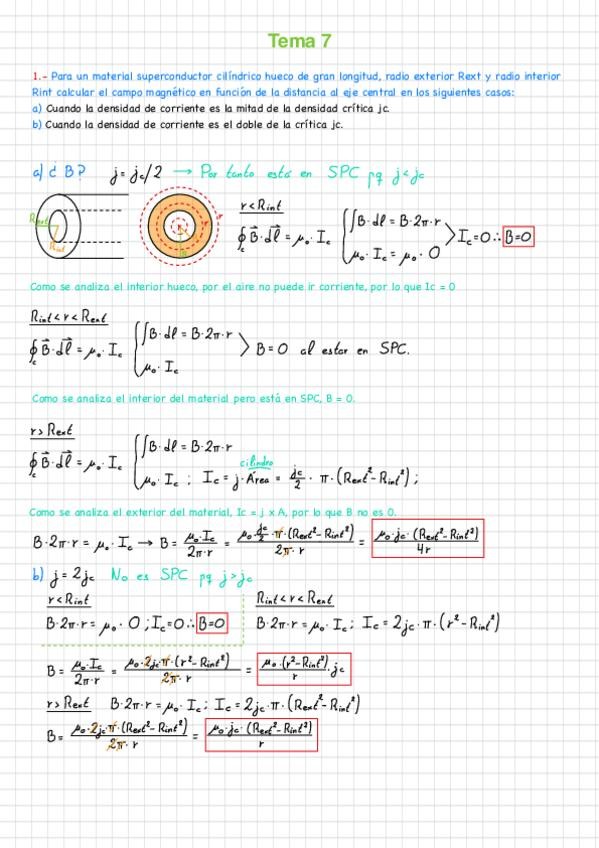 Tema 7
1.- Para un material superconductor cilíndrico hueco de gran longitud, radio exterior Rext y radio interior
Rint calcular el campo magnético en función de la distancia al eje central en los siguientes casos:
a) Cuando la densidad de corriente es la mitad de la densidad crítica jc.
b) Cuando la densidad de corriente es el doble de la crítica jc.
a) ¿B? j = jc/2 → Por tanto está en SPC pq j<jc
Rext
Rint
r<Rint
∮c B⃗·dl⃗ = μo·Ic { ∫B·dl = B·2π·r
μo·Ic = μo·0 > Ic=0∴ B=0
Como se analiza el interior hueco, por el aire no puede ir corriente, por lo que Ic = 0
Rint<r<Rext
∮c B⃗·dl⃗ = μo·Ic { ∫B·dl = B·2π·r
μo·Ic > B=0 al estar en SPC.
Como se analiza el interior del material pero está en SPC, B = 0.
r>Rext
∮c B⃗·dl⃗ = μo·Ic { ∫B·dl = B·2π·r
cilindro
μo·Ic ; Ic = j·Área = jc/2 · π·(Rext²-Rint²) ;
Como se analiza el exterior del material, Ic = j x A, por lo que B no es 0.
B·2π·r = μo·Ic → B = μo·Ic/2π·r = μo·jc/2·π·(Rext²-Rint²)/2π·r = μo·jc·(Rext²-Rint²)/4r
b) j = 2jc No es SPC pq j>jc
r<Rint
B·2π·r = μo·0 ; Ic=0∴ B=0
Rint<r<Rext
B·2π·r = μo·Ic ; Ic = 2jc·π·(r²-Rint²)
B = μo·Ic/2π·r = μo·2jc·π·(r²-Rint²)/2π·r = μo·(r²-Rint²)/r ·jc
r>Rext B·2π·r = μo·Ic ; Ic = 2jc·π·(Rext²-Rint²)
B = μo·2jc·π·(Rext²-Rint²)/2π·r = μo·jc·(Rext²-Rint²)/r